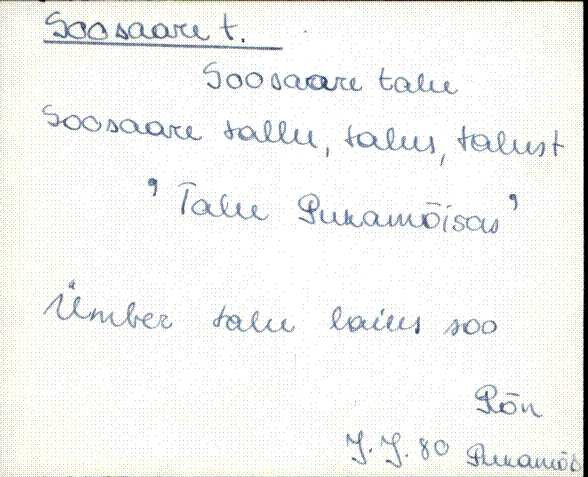 Soosaare t.
Soosaare talu
Soosaare tallu, talus, talust
'Talu Pukamõisas'
Ümber talu laius soo
Rõn
J. J. 80 Pukamõis